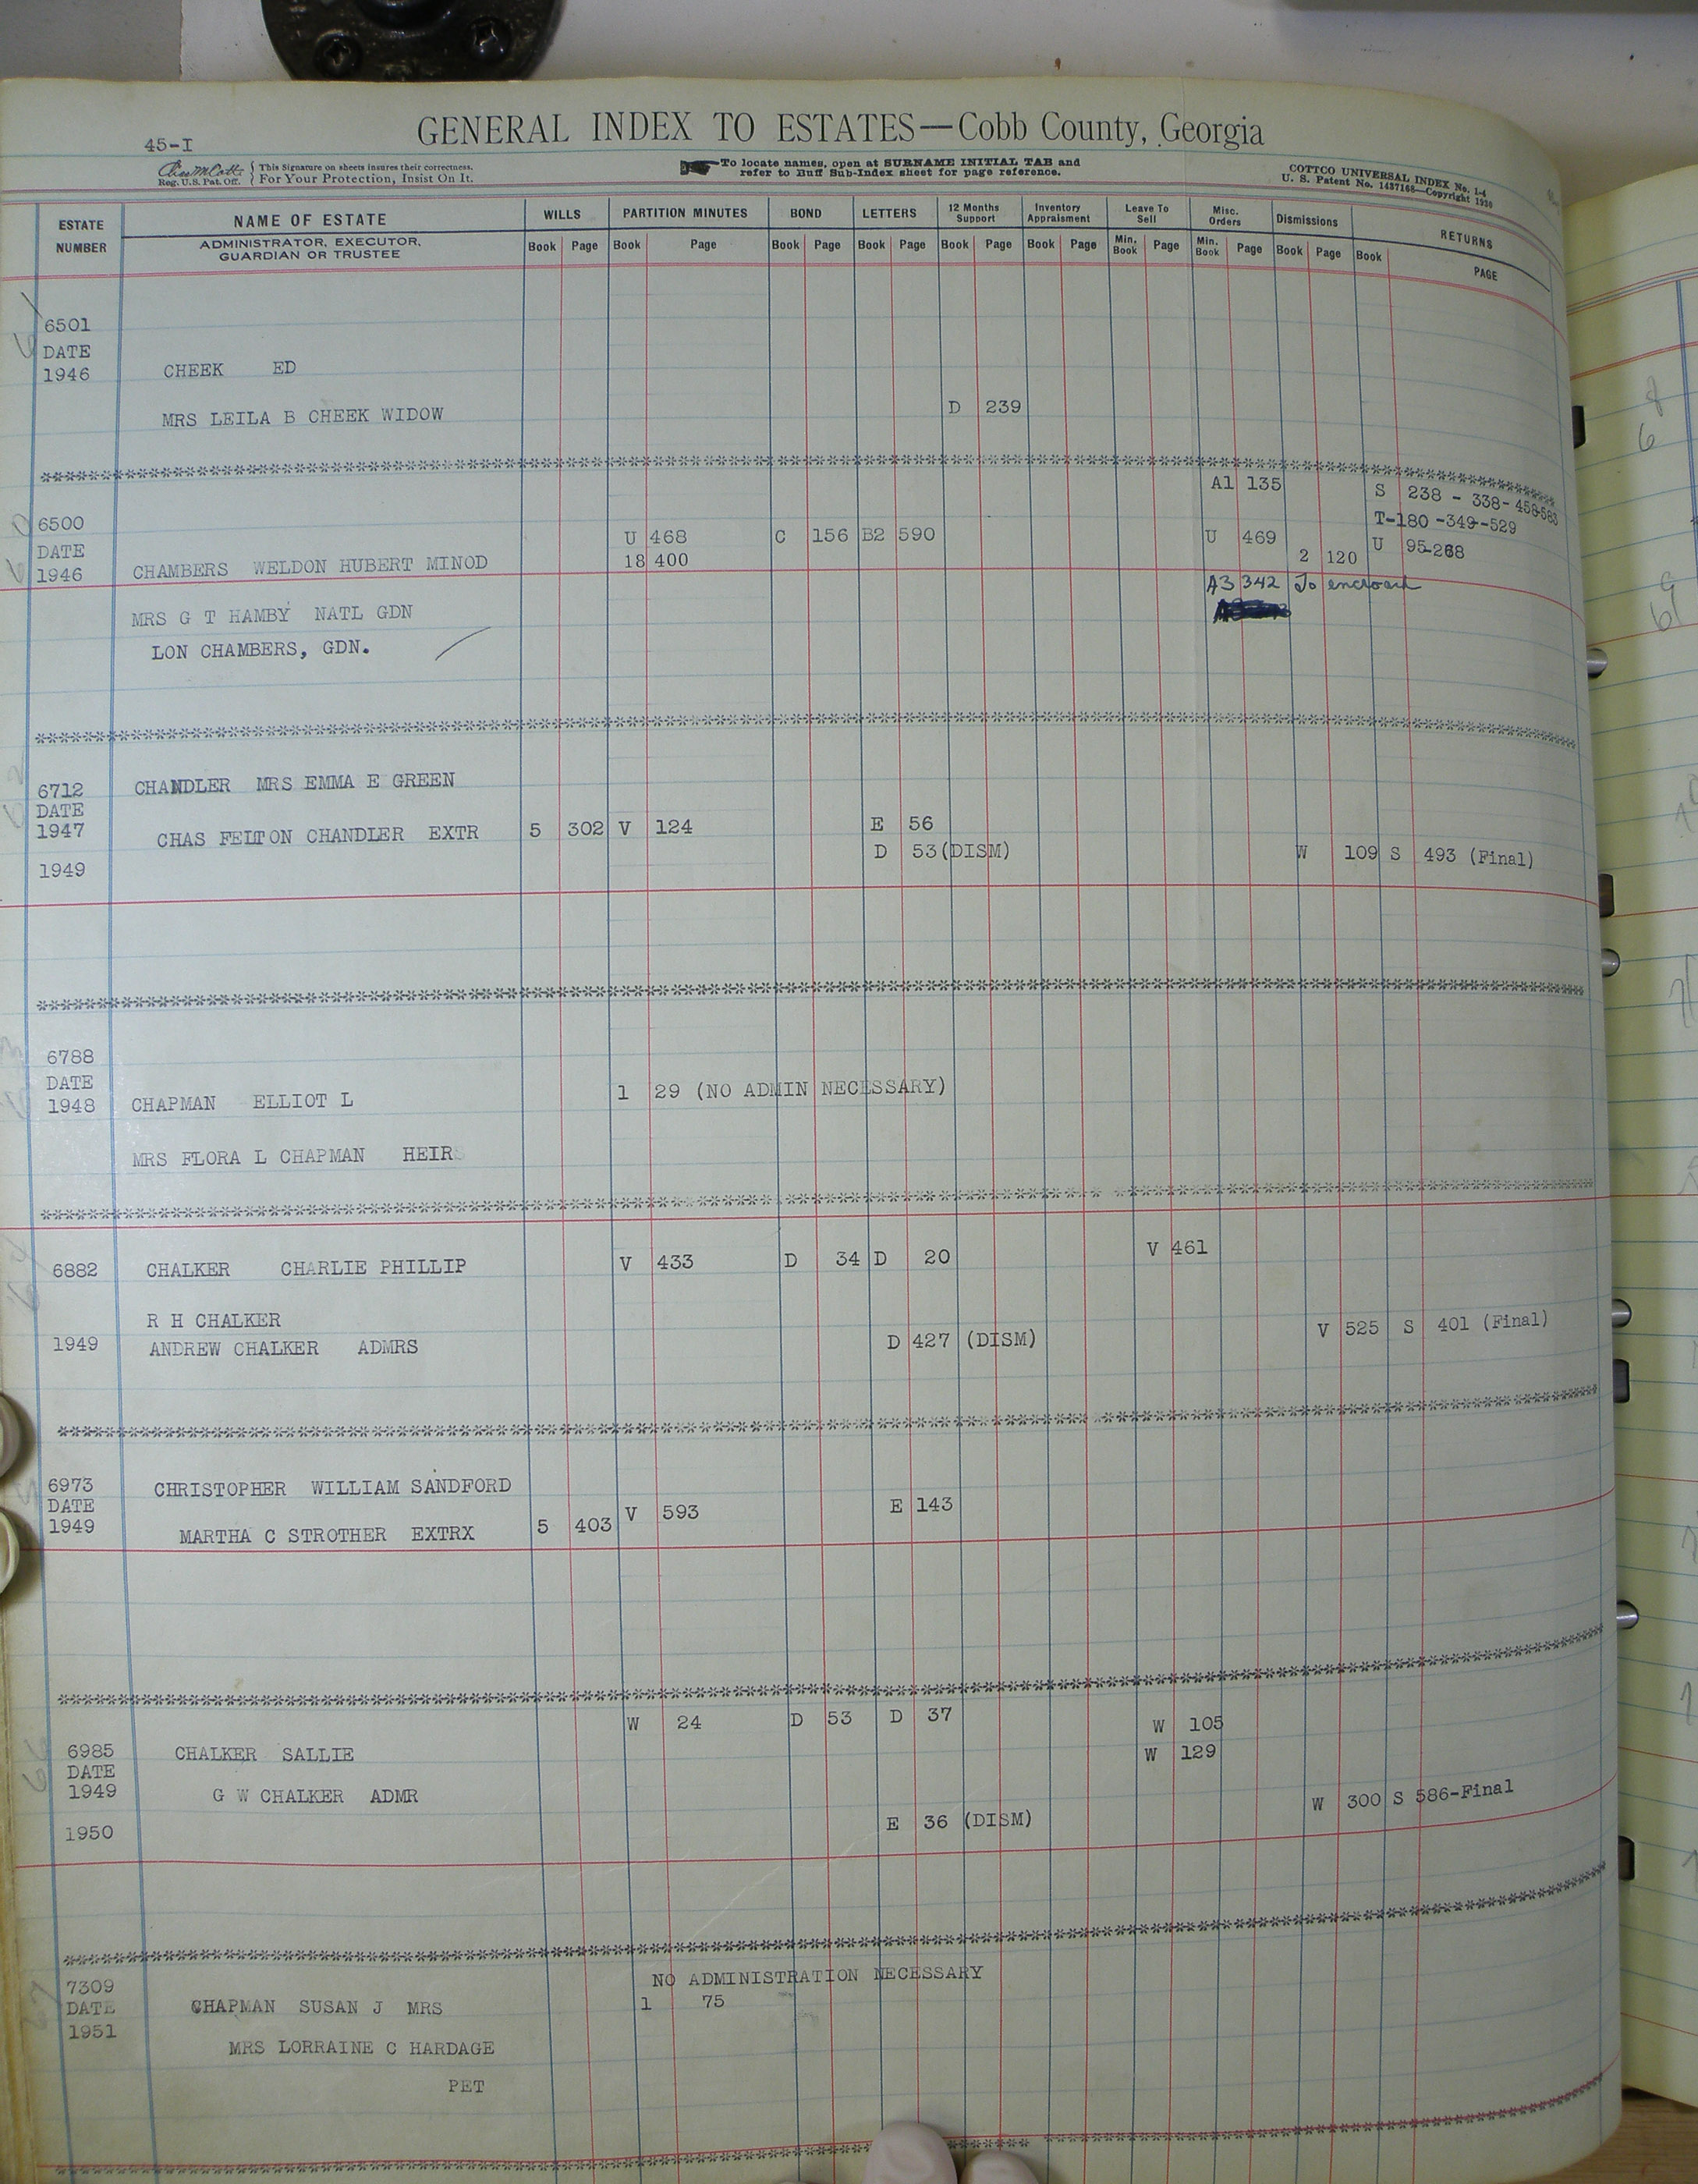 45-I
GENERAL INDEX TO ESTATES—Cobb County, Georgia
Reg. U.S. Pat. Off.
This Signature on sheets insures their correctness.
For Your Protection, Insist On It.
To locate names, open at SURNAME INITIAL TAB and
refer to Buff Sub-Index sheet for page reference.
COTTCO UNIVERSAL INDEX No. 1-4
U. S. Patent No. 1437168—Copyright 1930
ESTATE NUMBER
NAME OF ESTATE
ADMINISTRATOR, EXECUTOR,
GUARDIAN OR TRUSTEE
WILLS PARTITION MINUTES BOND LETTERS 12 Months Support Inventory Appraisment Leave To Sell Misc. Orders Dismissions RETURNS
Book Page Book Page Book Page Book Page Book Page Book Page Min. Book Page Min. Book Page Book Page Book PAGE
6501
DATE
1946 CHEEK ED
MRS LEILA B CHEEK WIDOW D 239
A1 135 S 238 - 338- 458-583
6500 T-180 -349--529
U 468 C 156 B2 590 U 469 U 95-268
DATE
18 400 2 120
1946 CHAMBERS WELDON HUBERT MINOD
A3 342 To encroach
MRS G T HAMBY NATL GDN
LON CHAMBERS, GDN.
6712 CHANDLER MRS EMMA E GREEN
DATE
1947 CHAS FELTON CHANDLER EXTR 5 302 V 124 E 56
D 53(DISM) W 109 S 493 (Final)
1949
6788
DATE
1948 CHAPMAN ELLIOT L 1 29 (NO ADMIN NECESSARY)
MRS FLORA L CHAPMAN HEIRS
6882 CHALKER CHARLIE PHILLIP V 433 D 34 D 20 V 461
R H CHALKER
1949 ANDREW CHALKER ADMRS D 427 (DISM) V 525 S 401 (Final)
6973 CHRISTOPHER WILLIAM SANDFORD
DATE
1949 MARTHA C STROTHER EXTRX 5 403 V 593 E 143
W 24 D 53 D 37 W 105
6985 CHALKER SALLIE W 129
DATE
1949 G W CHALKER ADMR W 300 S 586-Final
1950 E 36 (DISM)
NO ADMINISTRATION NECESSARY
7309
DATE CHAPMAN SUSAN J MRS 1 75
1951
MRS LORRAINE C HARDAGE
PET